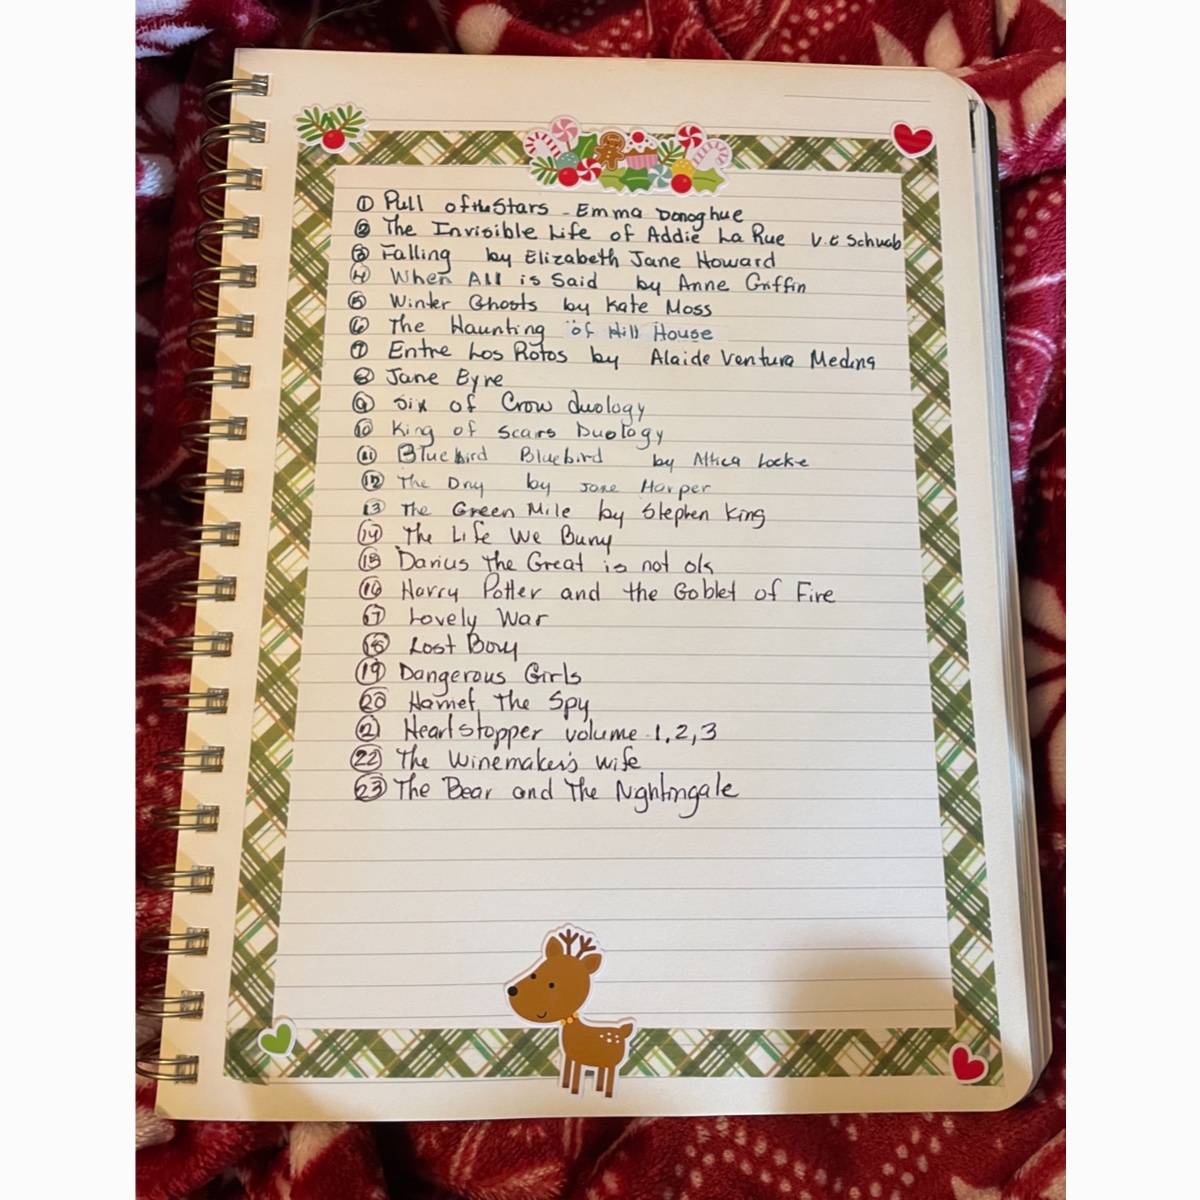 ① Pull of the Stars - Emma Donoghue
② The Invisible Life of Addie La Rue V.E Schwab
③ Falling by Elizabeth Jane Howard
④ When All is Said by Anne Griffin
⑤ Winter Ghosts by Kate Moss
⑥ The Haunting of Hill House
⑦ Entre Los Rotos by Alaide Ventura Medina
⑧ Jane Eyre
⑨ Six of Crow duology
⑩ King of Scars Duology
⑪ Bluebird Bluebird by Attica Locke
⑫ The Dry by Jane Harper
⑬ The Green Mile by Stephen King
⑭ The Life We Bury
⑮ Darius The Great is not ok
⑯ Harry Potter and the Goblet of Fire
⑰ Lovely War
⑱ Lost Boy
⑲ Dangerous Girls
⑳ Harriet The Spy
㉑ Heartstopper volume 1,2,3
㉒ The Winemaker's wife
㉓ The Bear and The Nghtingale